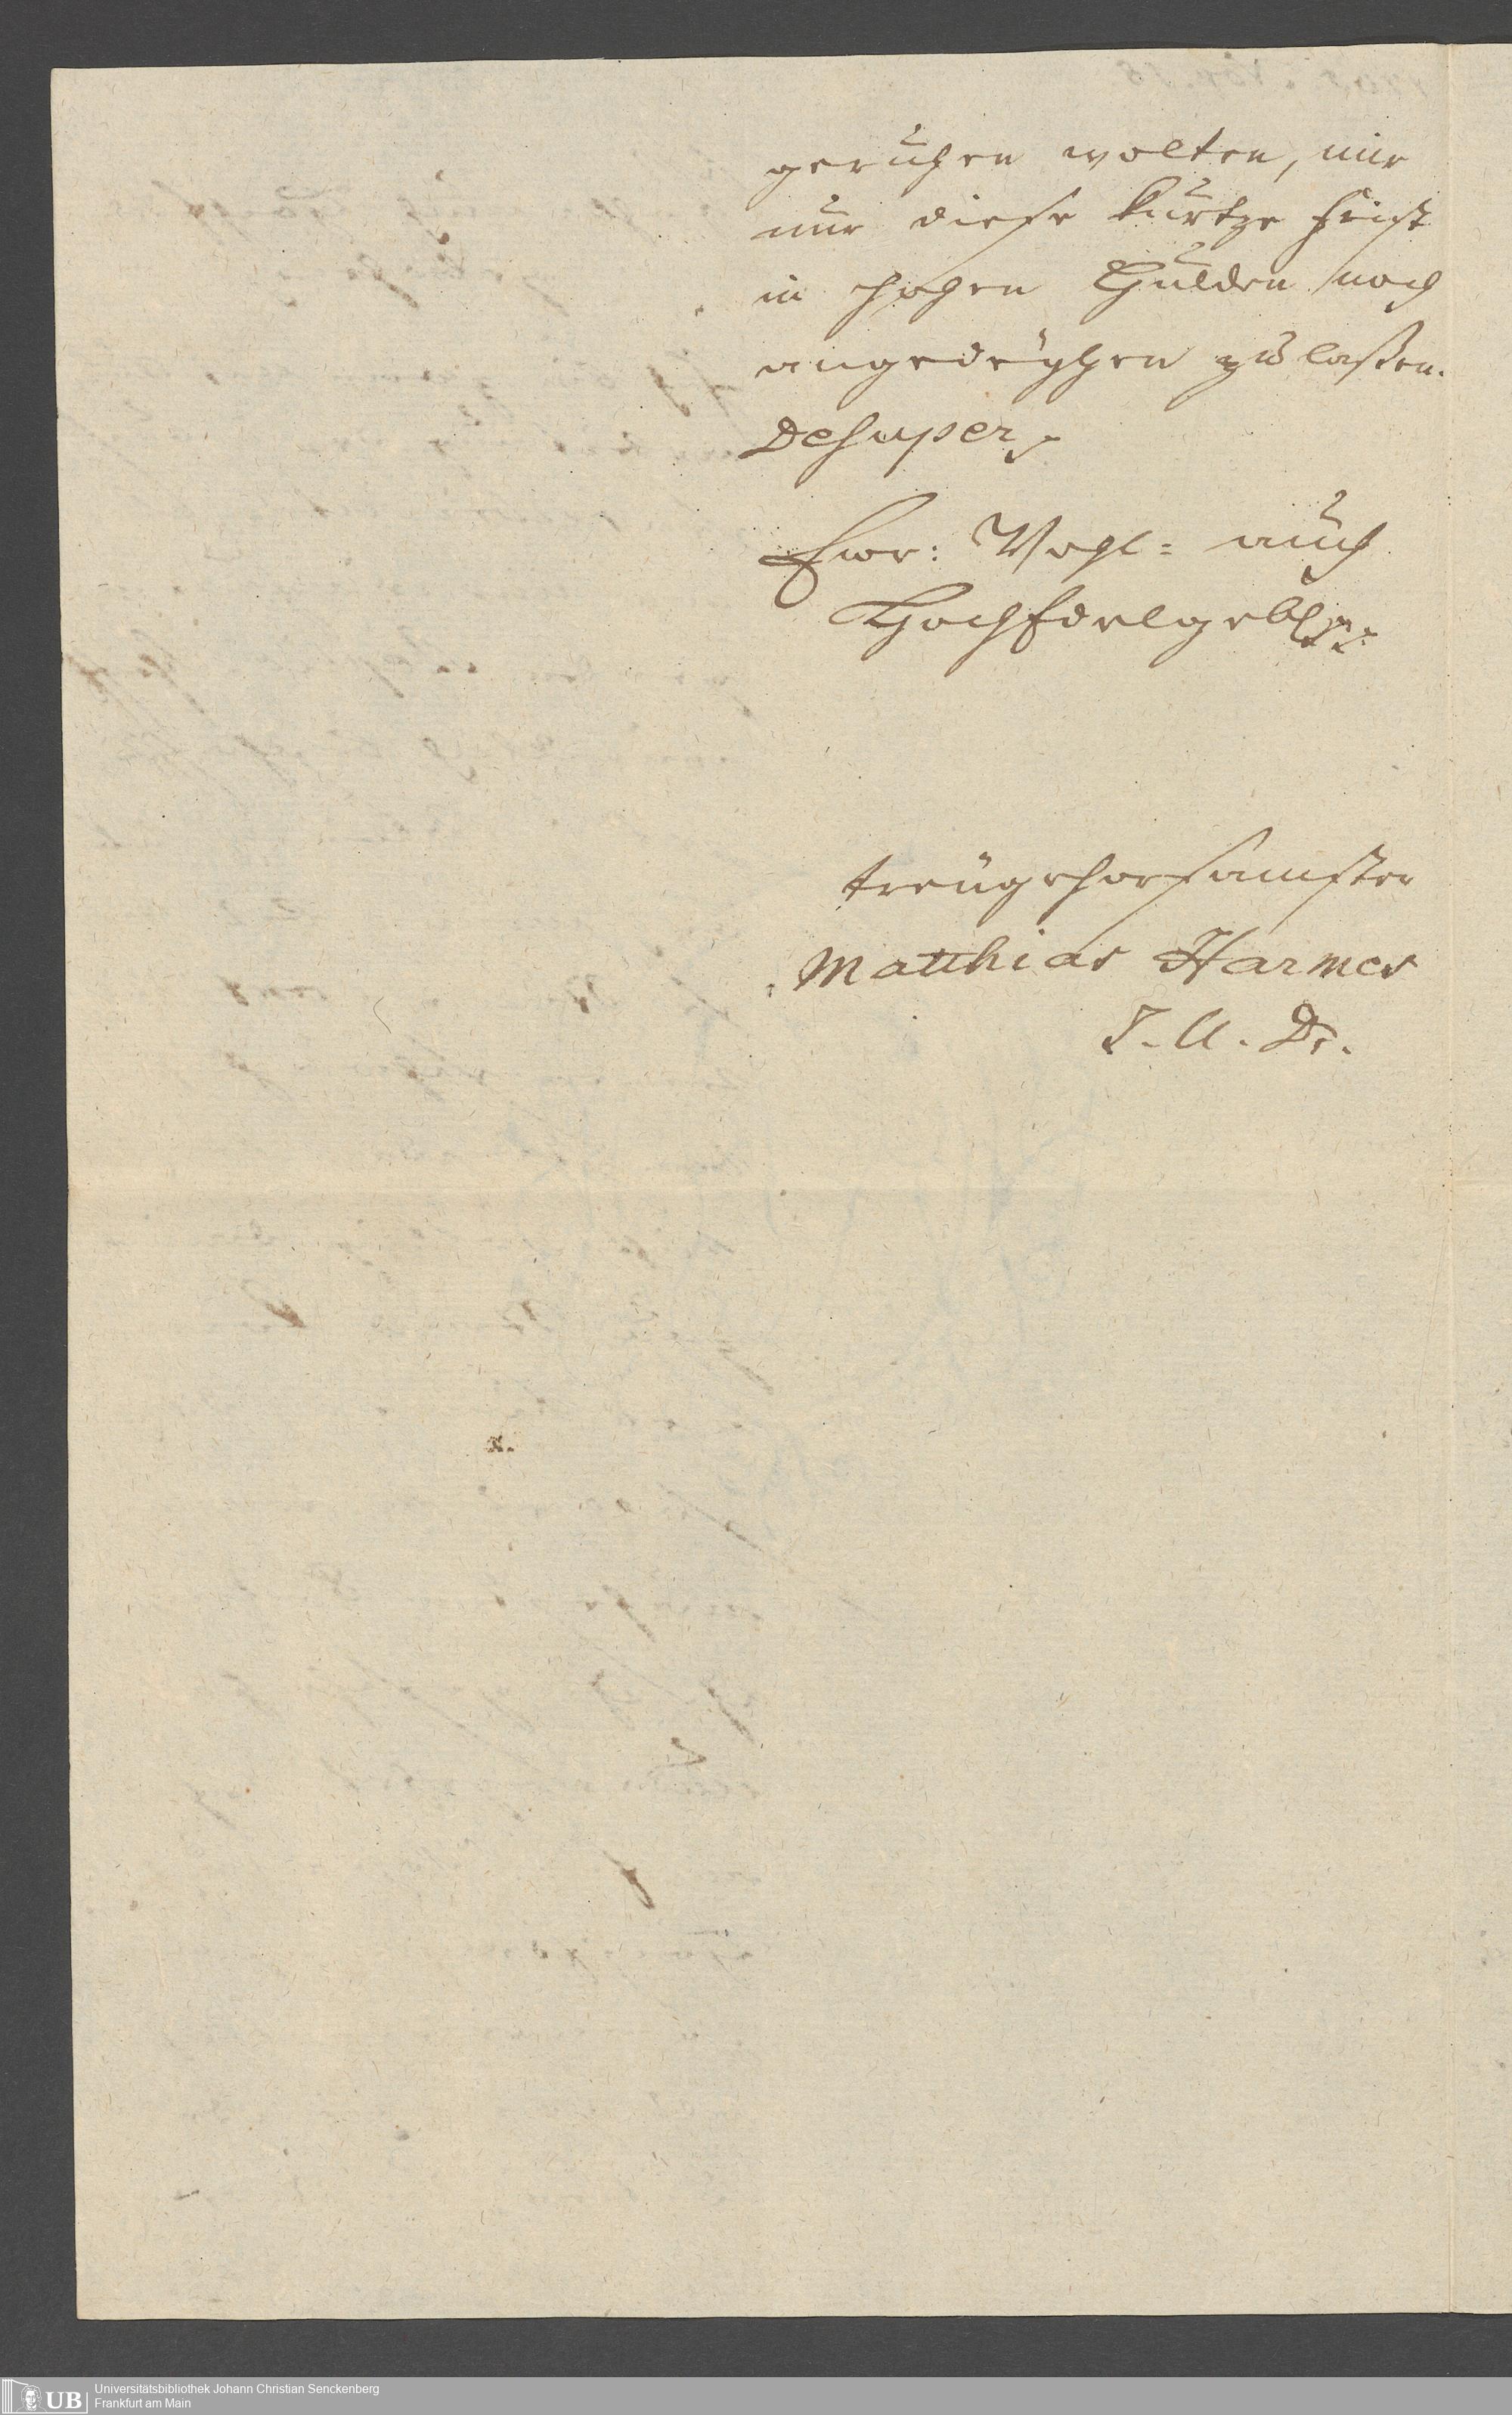 geruhen wolten, mir
nur diese kurtze frist
in hohen Hulden noch
angedeÿhen zu laßen.
Desuper
Ewr: Wohl= auch
HochEdelgebl.
treügehorsamster
Matthias Harmes
J. U. Dr.
UB
Universitätsbibliothek Johann Christian Senckenberg
Frankfurt am Main